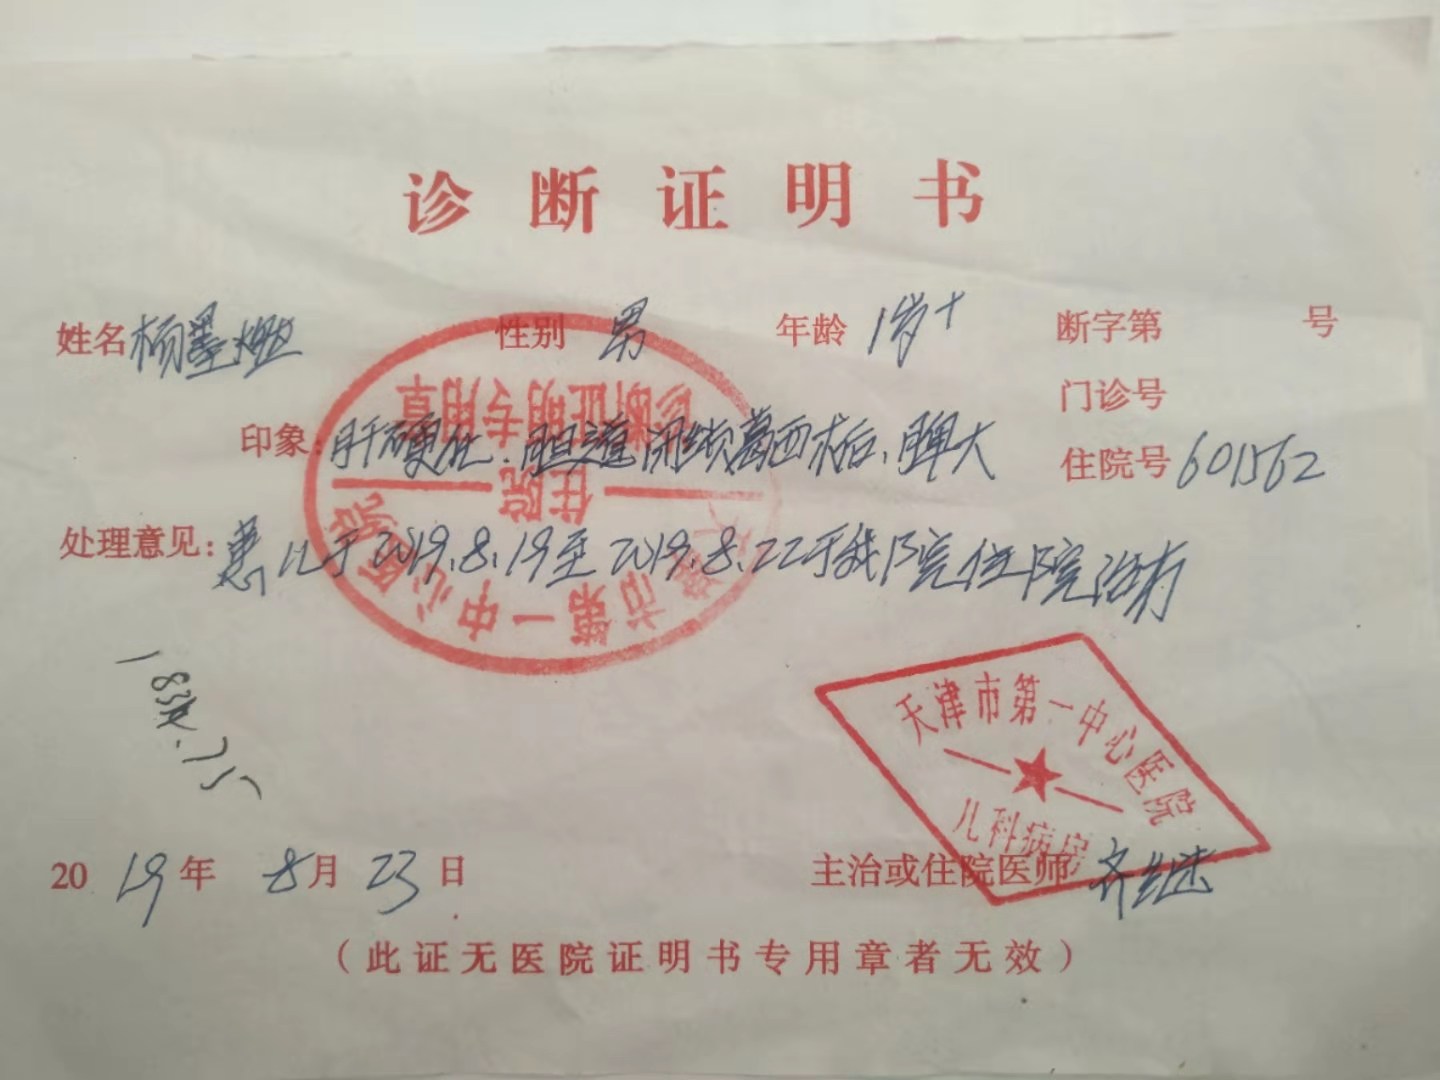 诊断证明书
姓名 杨墨燃 性别 男 年龄 1岁+ 断字第 号
门诊号
印象: 肝硬化、胆道闭锁葛西术后、脾大 住院号 601562
处理意见: 患儿于2019.8.19至2019.8.22于我院住院治疗
天津市第一中心医院
住院
诊断证明专用章
天津市第一中心医院
儿科病房
2019年 8月 23日 主治或住院医师 齐继
(此证无医院证明书专用章者无效)